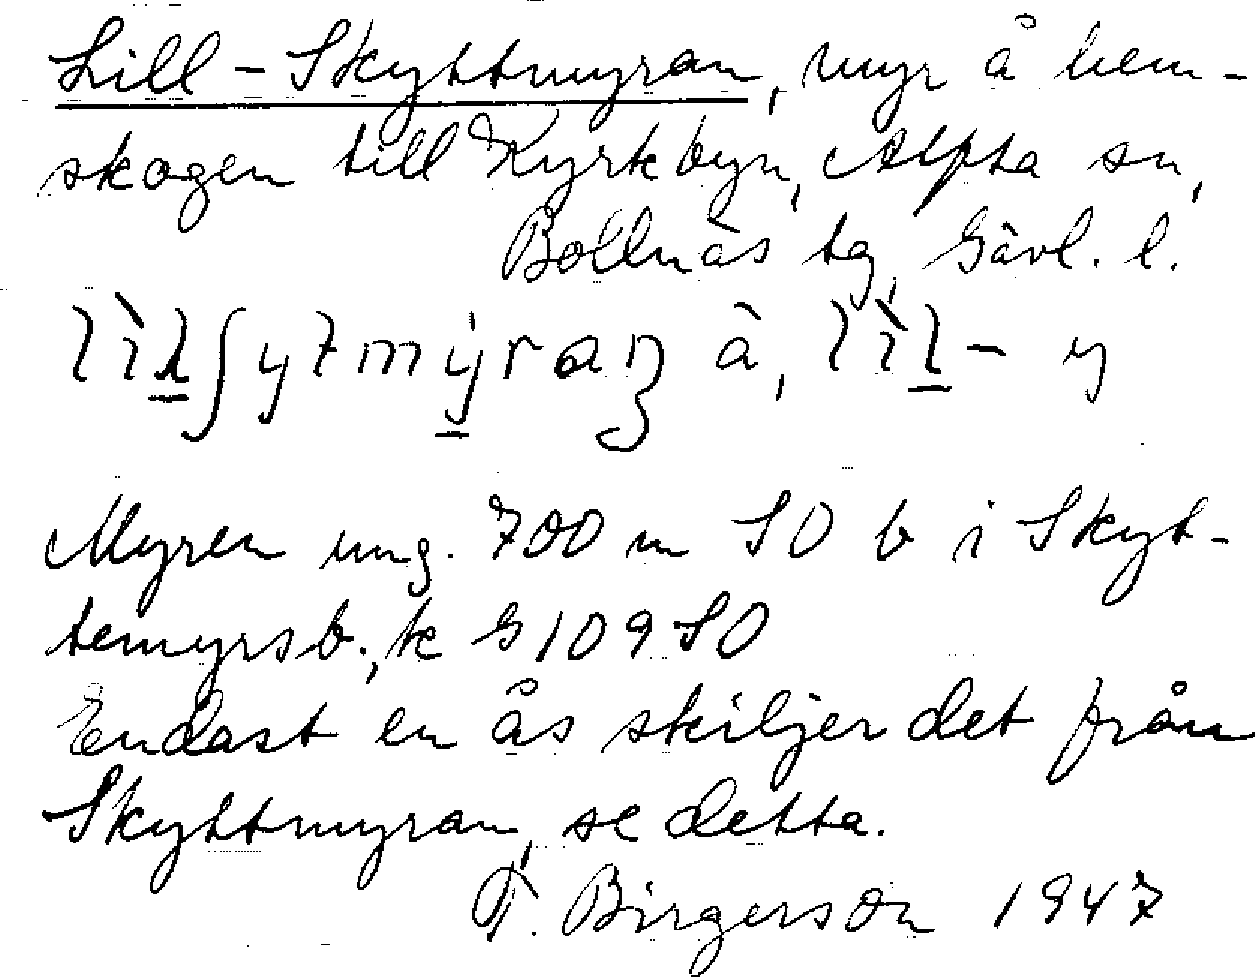 Lill-Skyttmyran, myr å hem-
skogen till Kyrkbyn, Alfta sn,
Bollnäs tg, Gävl. l.
Myren ung. 700 m SO b i Skyt-
temyrsb., k G 109 SO
Endast en ås skiljer det från
Skyttmyran, se detta.
T. Birgerson 1947